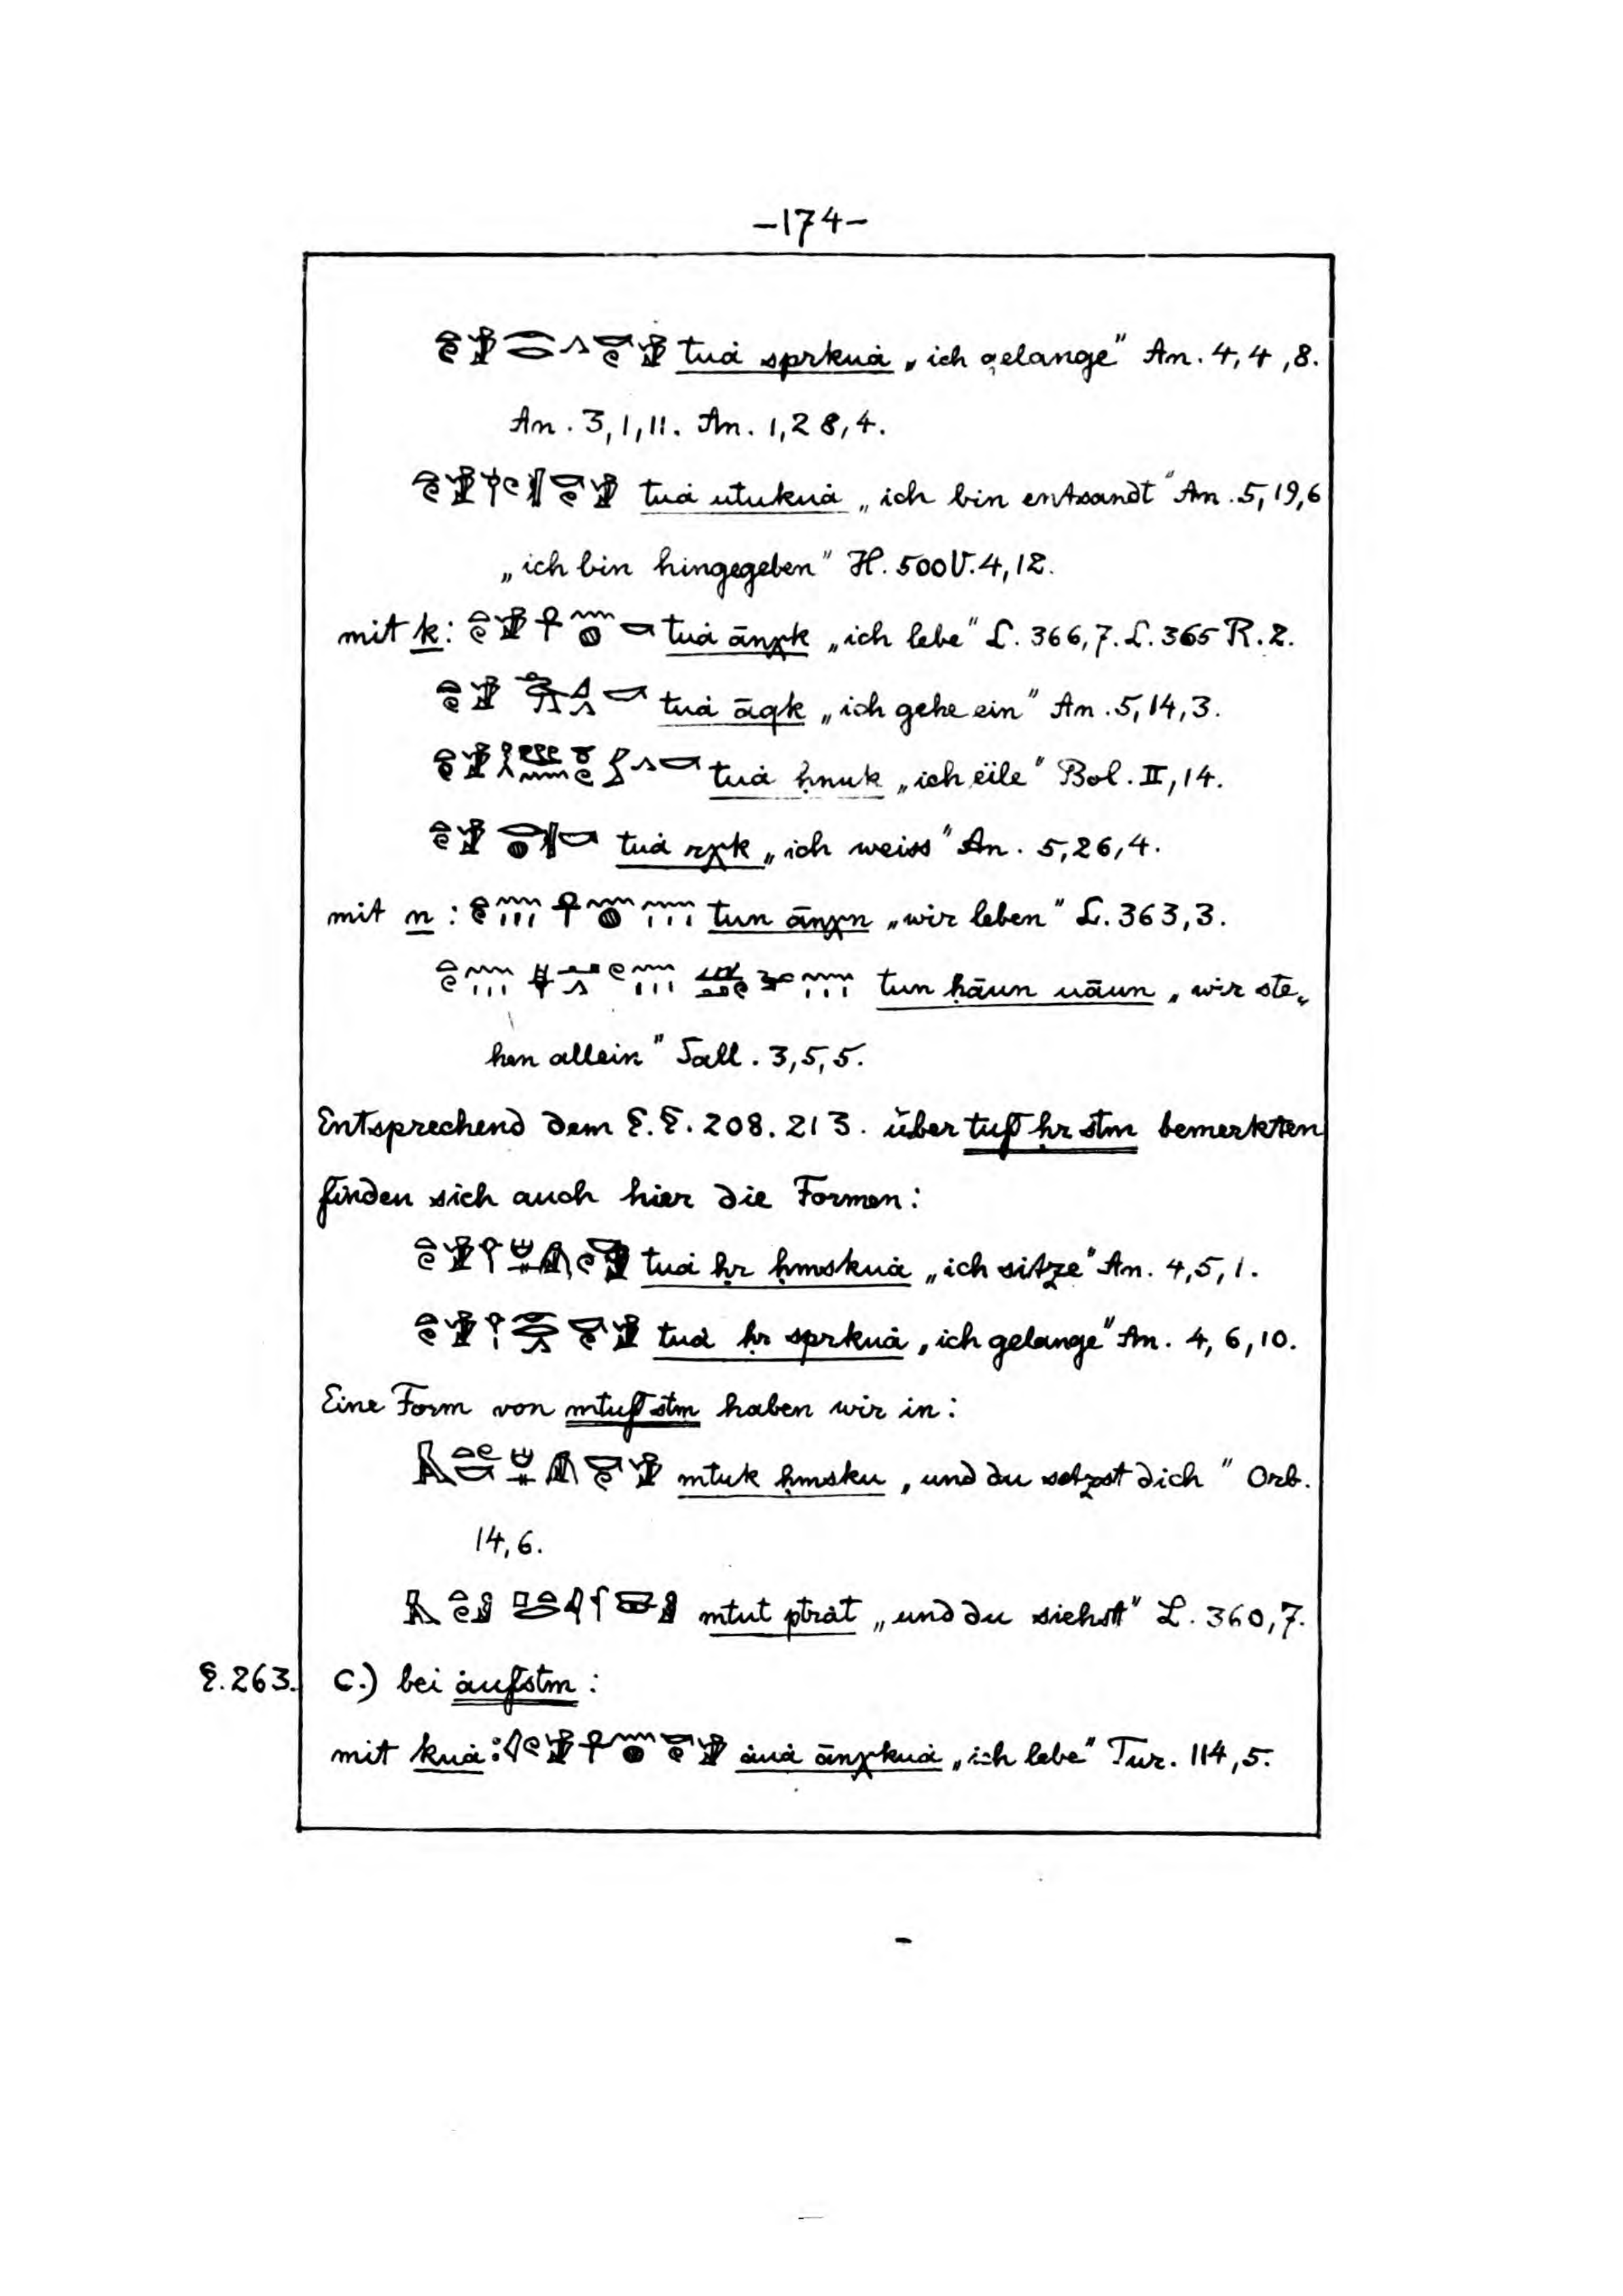 –174–
tuȧ sprkuȧ „ich gelange" An. 4,4,8.
An. 3,1,11. An. 1,28,4.
tuȧ utukuȧ „ich bin entsandt" An. 5,19,6
„ich bin hingegeben" H. 500 V. 4,12.
mit k: tuȧ ānχk „ich lebe" L. 366,7. L. 365 R. 2.
tuȧ āqk „ich gehe ein" An. 5,14,3.
tuȧ ḥnuk „ich eile" Bol. II, 14.
tuȧ rχk „ich weiss" An. 5,26,4.
mit n: tun ānχn „wir leben" L. 363,3.
tun ḥāun uāun „wir ste„
hen allein" Sall. 3,5,5.
Entsprechend dem §.§. 208. 213. über tuf ḥr stm bemerkten
finden sich auch hier die Formen:
tuȧ ḥr ḥmskuȧ „ich sitze" An. 4,5,1.
tuȧ ḥr sprkuȧ „ich gelange" An. 4,6,10.
Eine Form von mtuf stm haben wir in:
mtuk ḥmsku „und du setzst dich" Orb.
14,6.
mtut ptrȧt „und du siehst" L. 360,7.
§. 263. C.) bei ȧufstm:
mit kuȧ: ȧuȧ ānχkuȧ „ich lebe" Tur. 114,5.